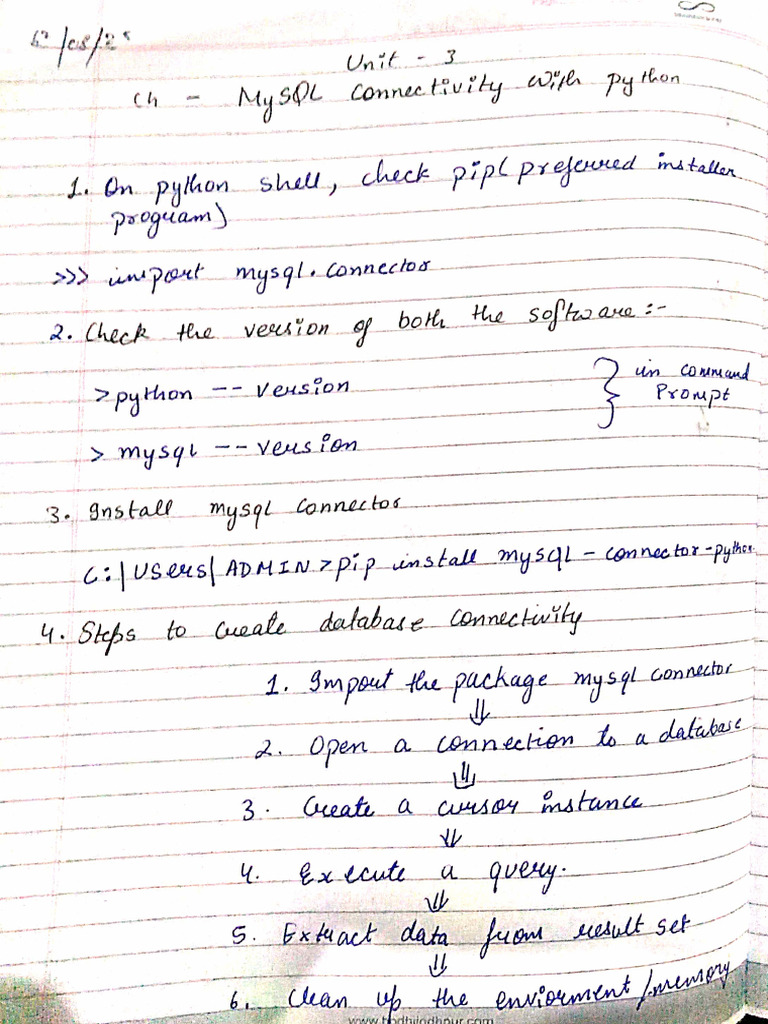 Unit - 3
Ch - MySQL Connectivity with python
1. On python shell, check pip( preferred installer
program)
>>> import mysql.connector
2. Check the version of both the software :-
>python -- version
> mysql -- version
} in command
Prompt
3. Install mysql connector
C:|Users| ADMIN >pip install mysql - connector - python
4. Steps to create database connectivity
1. Import the package mysql connector
⇓
2. Open a connection to a database
⇓
3. Create a cursor instance
⇓
4. Execute a query.
⇓
5. Extract data from result set
⇓
6. Clean up the enviorment /memory